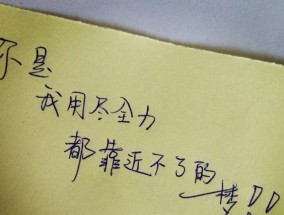 不是
我用尽全力
都靠近不了的
梦!!